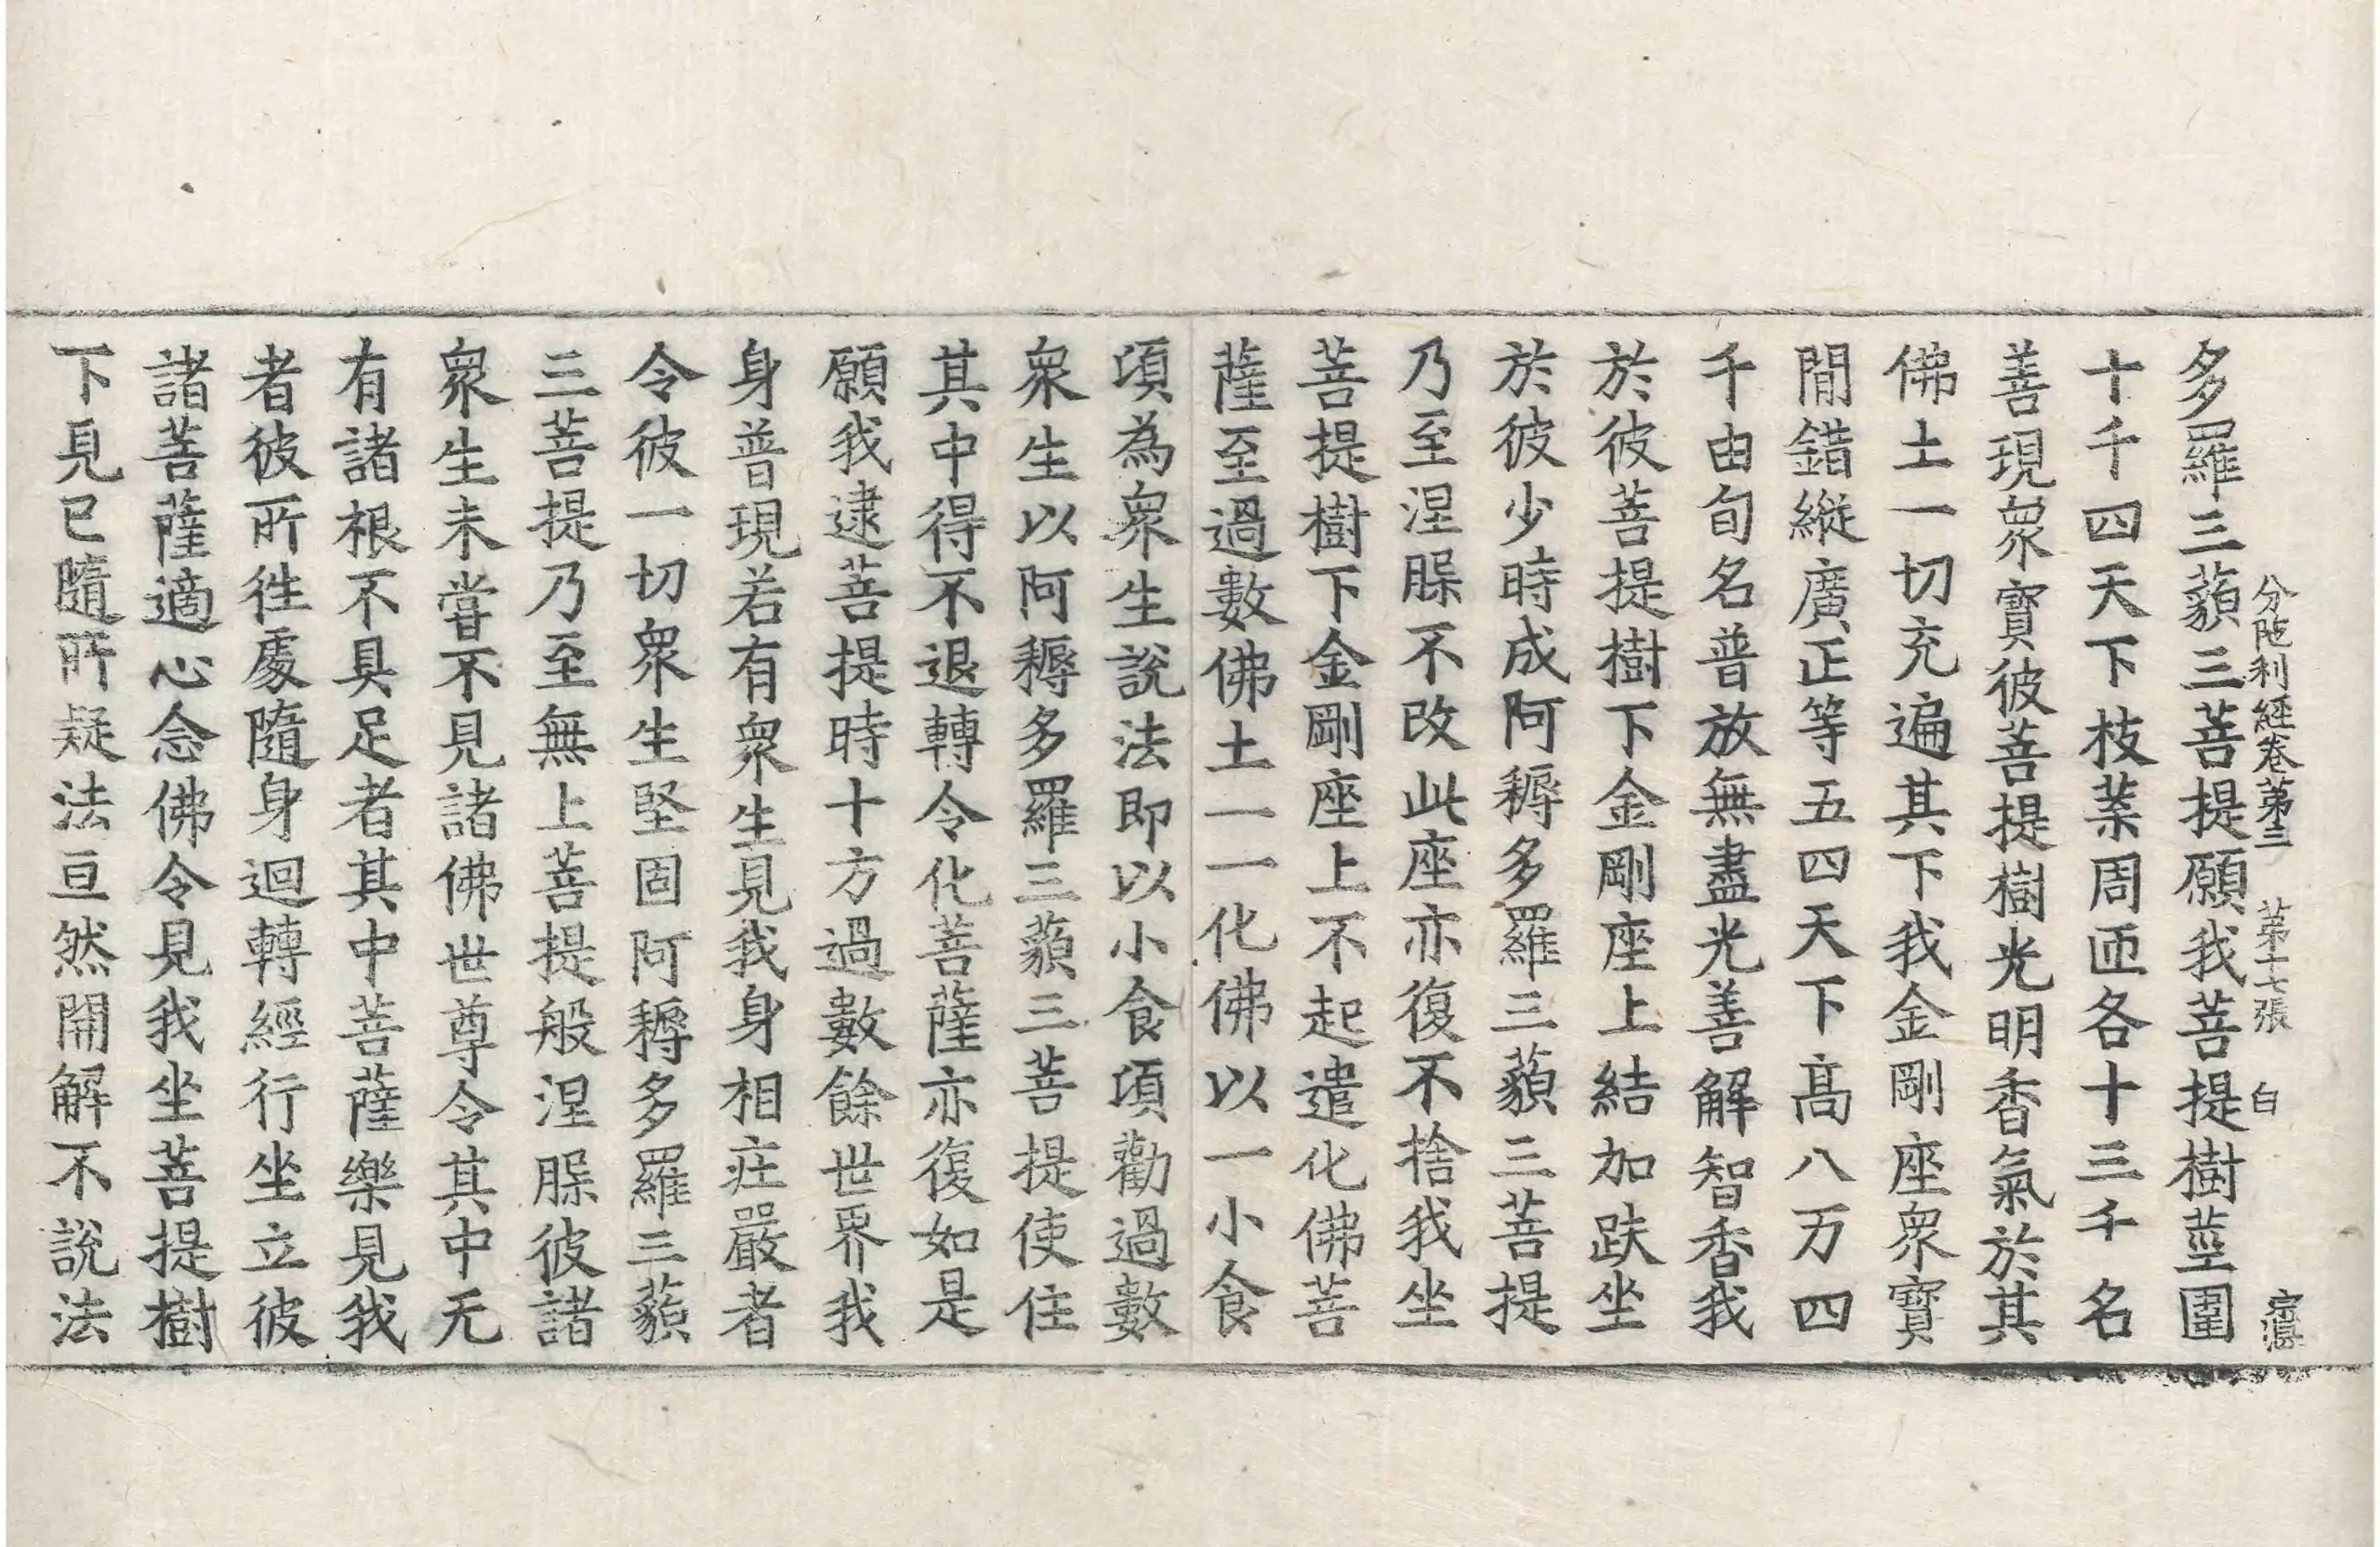 分陁利經卷第三 第十七張 白
多羅三藐三菩提願我菩提樹莖圍
十千四天下枝葉周匝各十三千名
善現眾寶彼菩提樹光明香氣於其
佛土一切充遍其下我金剛座眾寶
間錯縱廣正等五四天下髙八万四
千由旬名普放無盡光善解智香我
於彼菩提樹下金剛座上結加趺坐
於彼少時成阿耨多羅三藐三菩提
乃至涅槃不改此座亦復不捨我坐
菩提樹下金剛座上不起遣化佛菩
薩至過數佛土一一化佛以一小食
頃為眾生說法即以小食頃勸過數
眾生以阿耨多羅三藐三菩提使住
其中得不退轉令化菩薩亦復如是
願我逮菩提時十方過數餘世界我
身普現若有眾生見我身相莊嚴者
令彼一切眾生堅固阿耨多羅三藐
三菩提乃至無上菩提般涅槃彼諸
眾生未嘗不見諸佛世尊令其中无
有諸根不具足者其中菩薩樂見我
者彼所往處隨身迴轉經行坐立彼
諸菩薩適心念佛令見我坐菩提樹
下見已隨所疑法亘然開解不說法